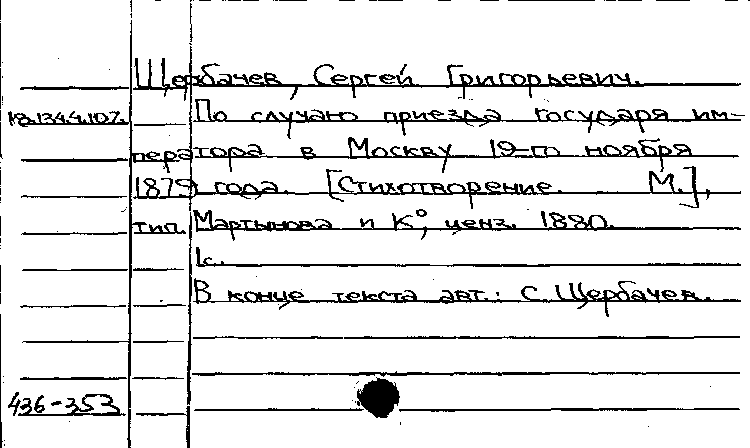 Щербачев, Сергей Григорьевич.
Кв.134.4.107. По случаю приезда государя им-
ператора в Москву 19-го ноября
1879 года. [Стихотворение. М.],
тип. Мартынова и К°, ценз. 1880.
1с.
В конце текста авт.: С. Щербачев.
436-353